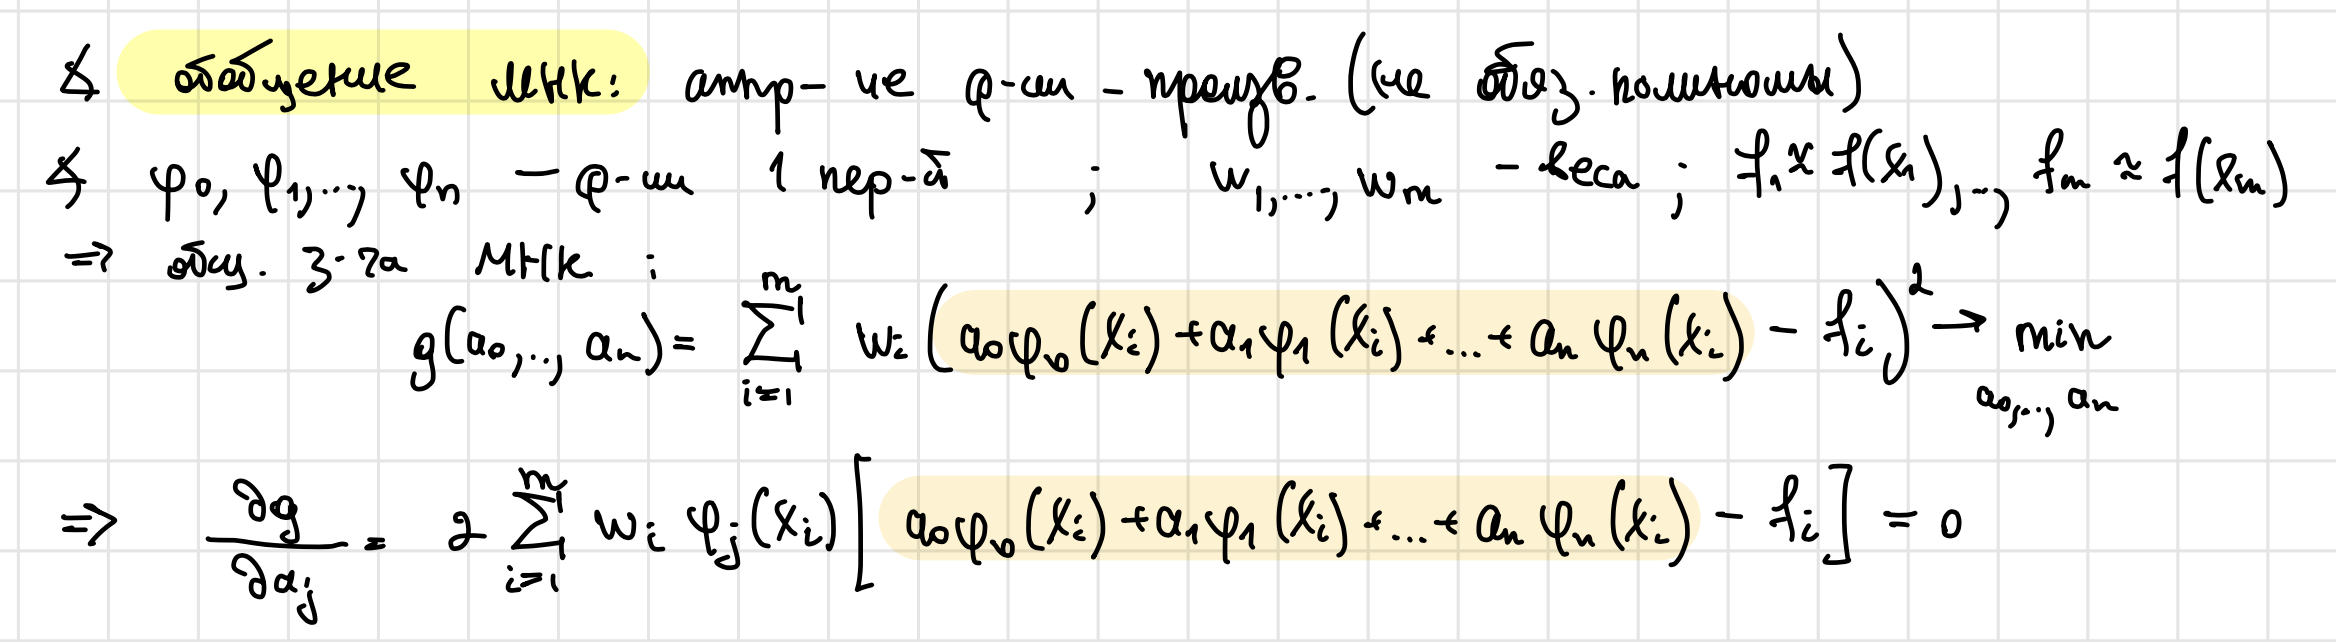 ∢ обобщение МНК: аппр-ие ф-ии - произв. (не обяз. полиномы)
∢ φ₀, φ₁,..., φₙ - ф-ии 1 пер-й ; w₁,..., wₘ - веса ; f₁ ≈ f(x₁),..., fₘ ≈ f(xₘ)
⇒ общ. з-ча МНК :
g(a₀,..., aₙ) = ∑_{i=1}^{m} wᵢ (a₀φ₀(xᵢ) + a₁φ₁(xᵢ) + ... + aₙφₙ(xᵢ) - fᵢ)² → min_{a₀,..., aₙ}
⇒ ∂g/∂aⱼ = 2 ∑_{i=1}^{m} wᵢ φⱼ(xᵢ) [a₀φ₀(xᵢ) + a₁φ₁(xᵢ) + ... + aₙφₙ(xᵢ) - fᵢ] = 0